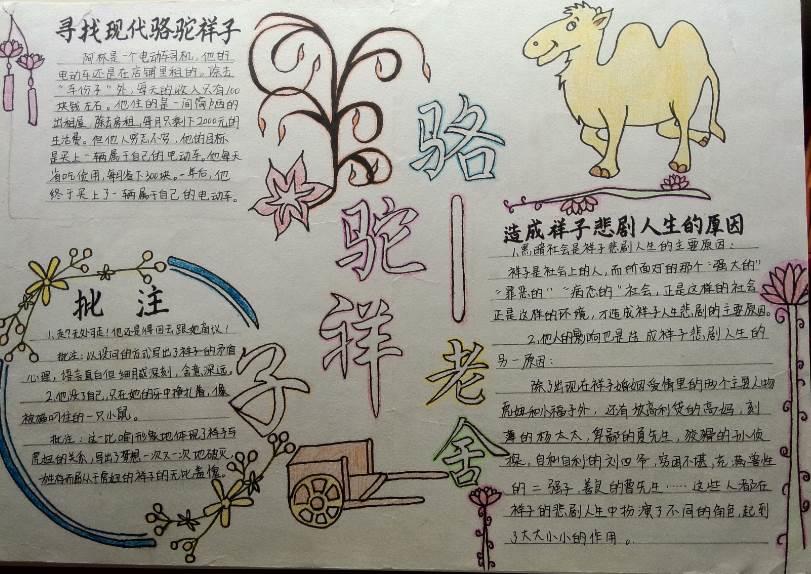 寻找现代骆驼祥子
阿桥是一个电动车司机,他的
电动车还是在店铺里租的。除去
“车份子”外,每天的收入只有100
块钱左右。他住的是一间简陋的
出租屋,除去房租,每月只剩下2000元的
生活费。但他人穷志不穷,他的目标
是买上一辆属于自己的电动车。他每天
省吃俭用,每月省下300块。一年后,他
终于买上了一辆属于自己的电动车。
骆驼祥子
——老舍
批注
1.走?无处可走!他还是得回去跟她商议!
批注:以设问的方式写出了祥子的矛盾
心理,语言直白但细腻或深刻,含意深远。
2.他没了自己,只在她的牙中挣扎着,像
被猫叼住的一只小鼠。
批注:这一比喻形象地体现了祥子与
虎妞的关系,写出了梦想一次又一次地破灭,
造成祥子悲剧人生的原因
1.黑暗社会是祥子悲剧人生的主要原因:
祥子是社会上的人,而他面对的那个“强大的”
“罪恶的”“病态的”社会,正是这样的社会
正是这样的环境,才造成祥子人生悲剧的主要原因。
2.他人的影响也是造成祥子悲剧人生的
另一原因:
除了出现在祥子婚姻爱情里的两个主要人物
虎妞和小福子外,还有放高利贷的高妈,刻
薄的杨太太,卑鄙的夏先生,狡猾的孙侦
探,自私自利的刘四爷,穷困不堪,充满兽性
的二强子,善良的曹先生……这些人都在
祥子的悲剧人生中扮演了不同的角色,起到
了大大小小的作用。